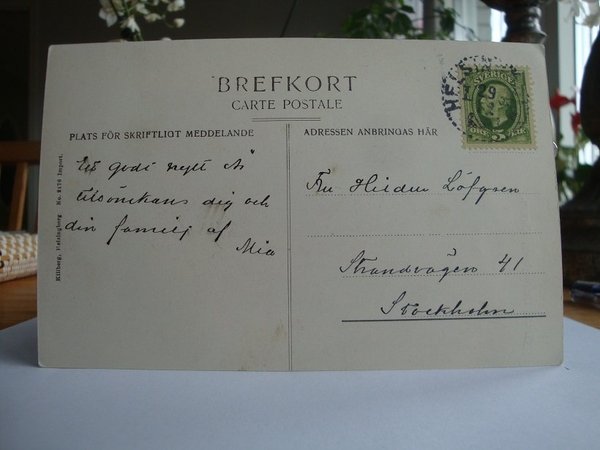 BREFKORT
CARTE POSTALE
PLATS FÖR SKRIFTLIGT MEDDELANDE
ADRESSEN ANBRINGAS HÄR
Ett godt nytt År
tillönskans dig och
din familj af
Mia
Fru Hildur Löfgren
Strandvägen 41
Stockholm
Killberg, Helsingborg No. 2176 Import.
HELSIN
29
SVERIGE
5
ÖRE